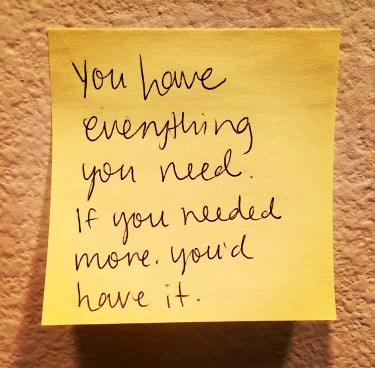 You have
everything
you need.
If you needed
more. you'd
have it.